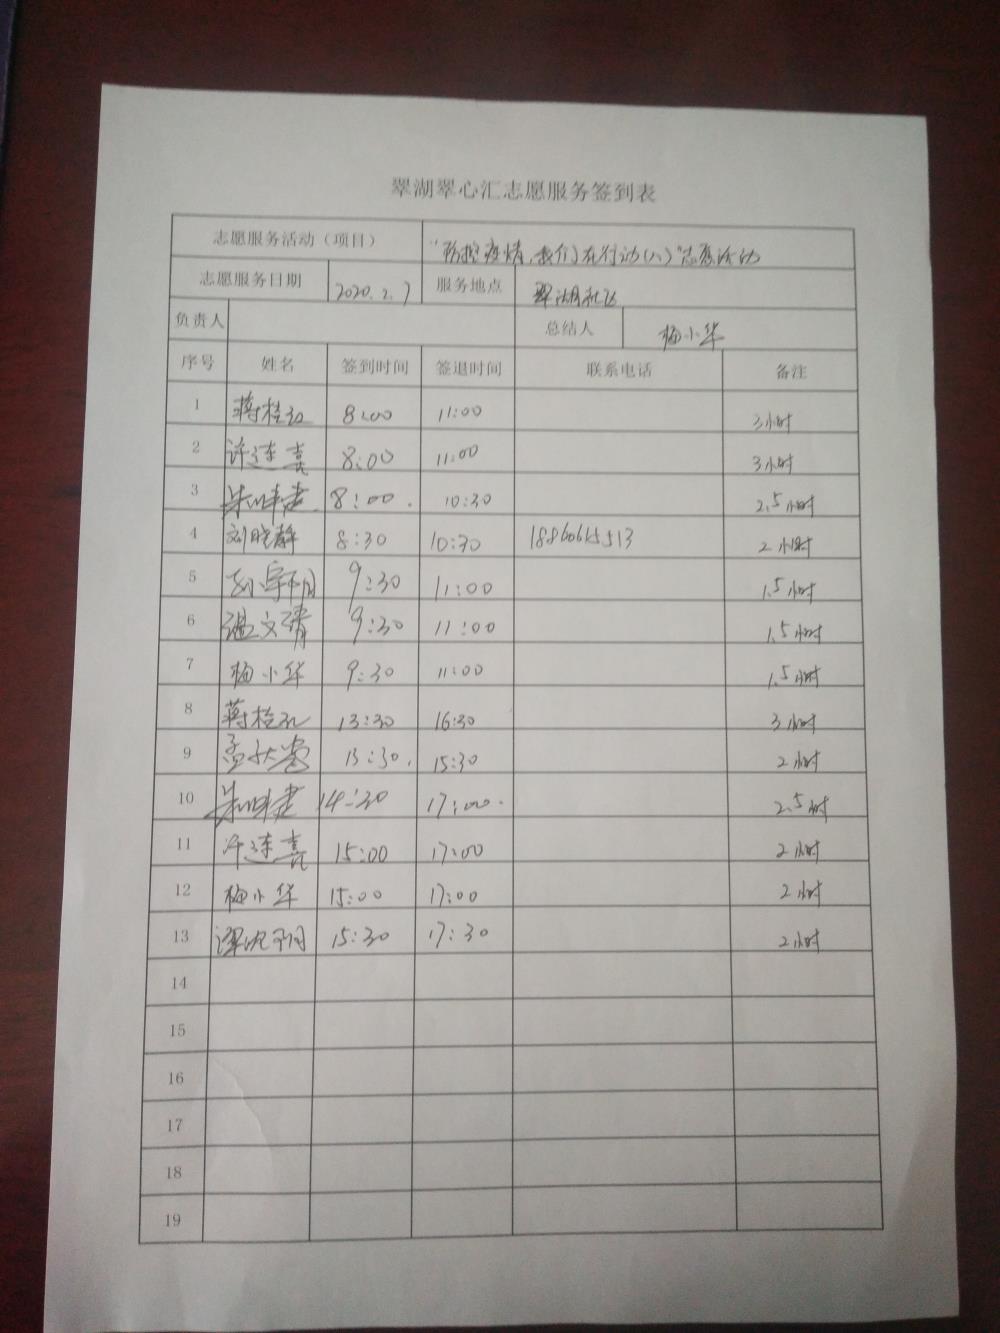 翠湖翠心汇志愿服务签到表
志愿服务活动（项目） “防控疫情，我们在行动（八）”志愿活动
志愿服务日期 2020.2.7 服务地点 翠湖社区
负责人 总结人 梅小华
序号 姓名 签到时间 签退时间 联系电话 备注
1 蒋桂红 8:00 11:00 3小时
2 许连喜 8:00 11:00 3小时
3 8:00. 10:30 2.5小时
4 刘晓静 8:30 10:30 2小时
5 9:30 11:00 1.5小时
6 温文清 9:30 11:00 1.5小时
7 梅小华 9:30 11:00 1.5小时
8 蒋桂红 13:30 16:30 3小时
9 13:30. 15:30 2小时
10 14:30 17:00. 2.5小时
11 许连喜 15:00 17:00 2小时
12 梅小华 15:00 17:00 2小时
13 15:30 17:30 2小时
14
15
16
17
18
19